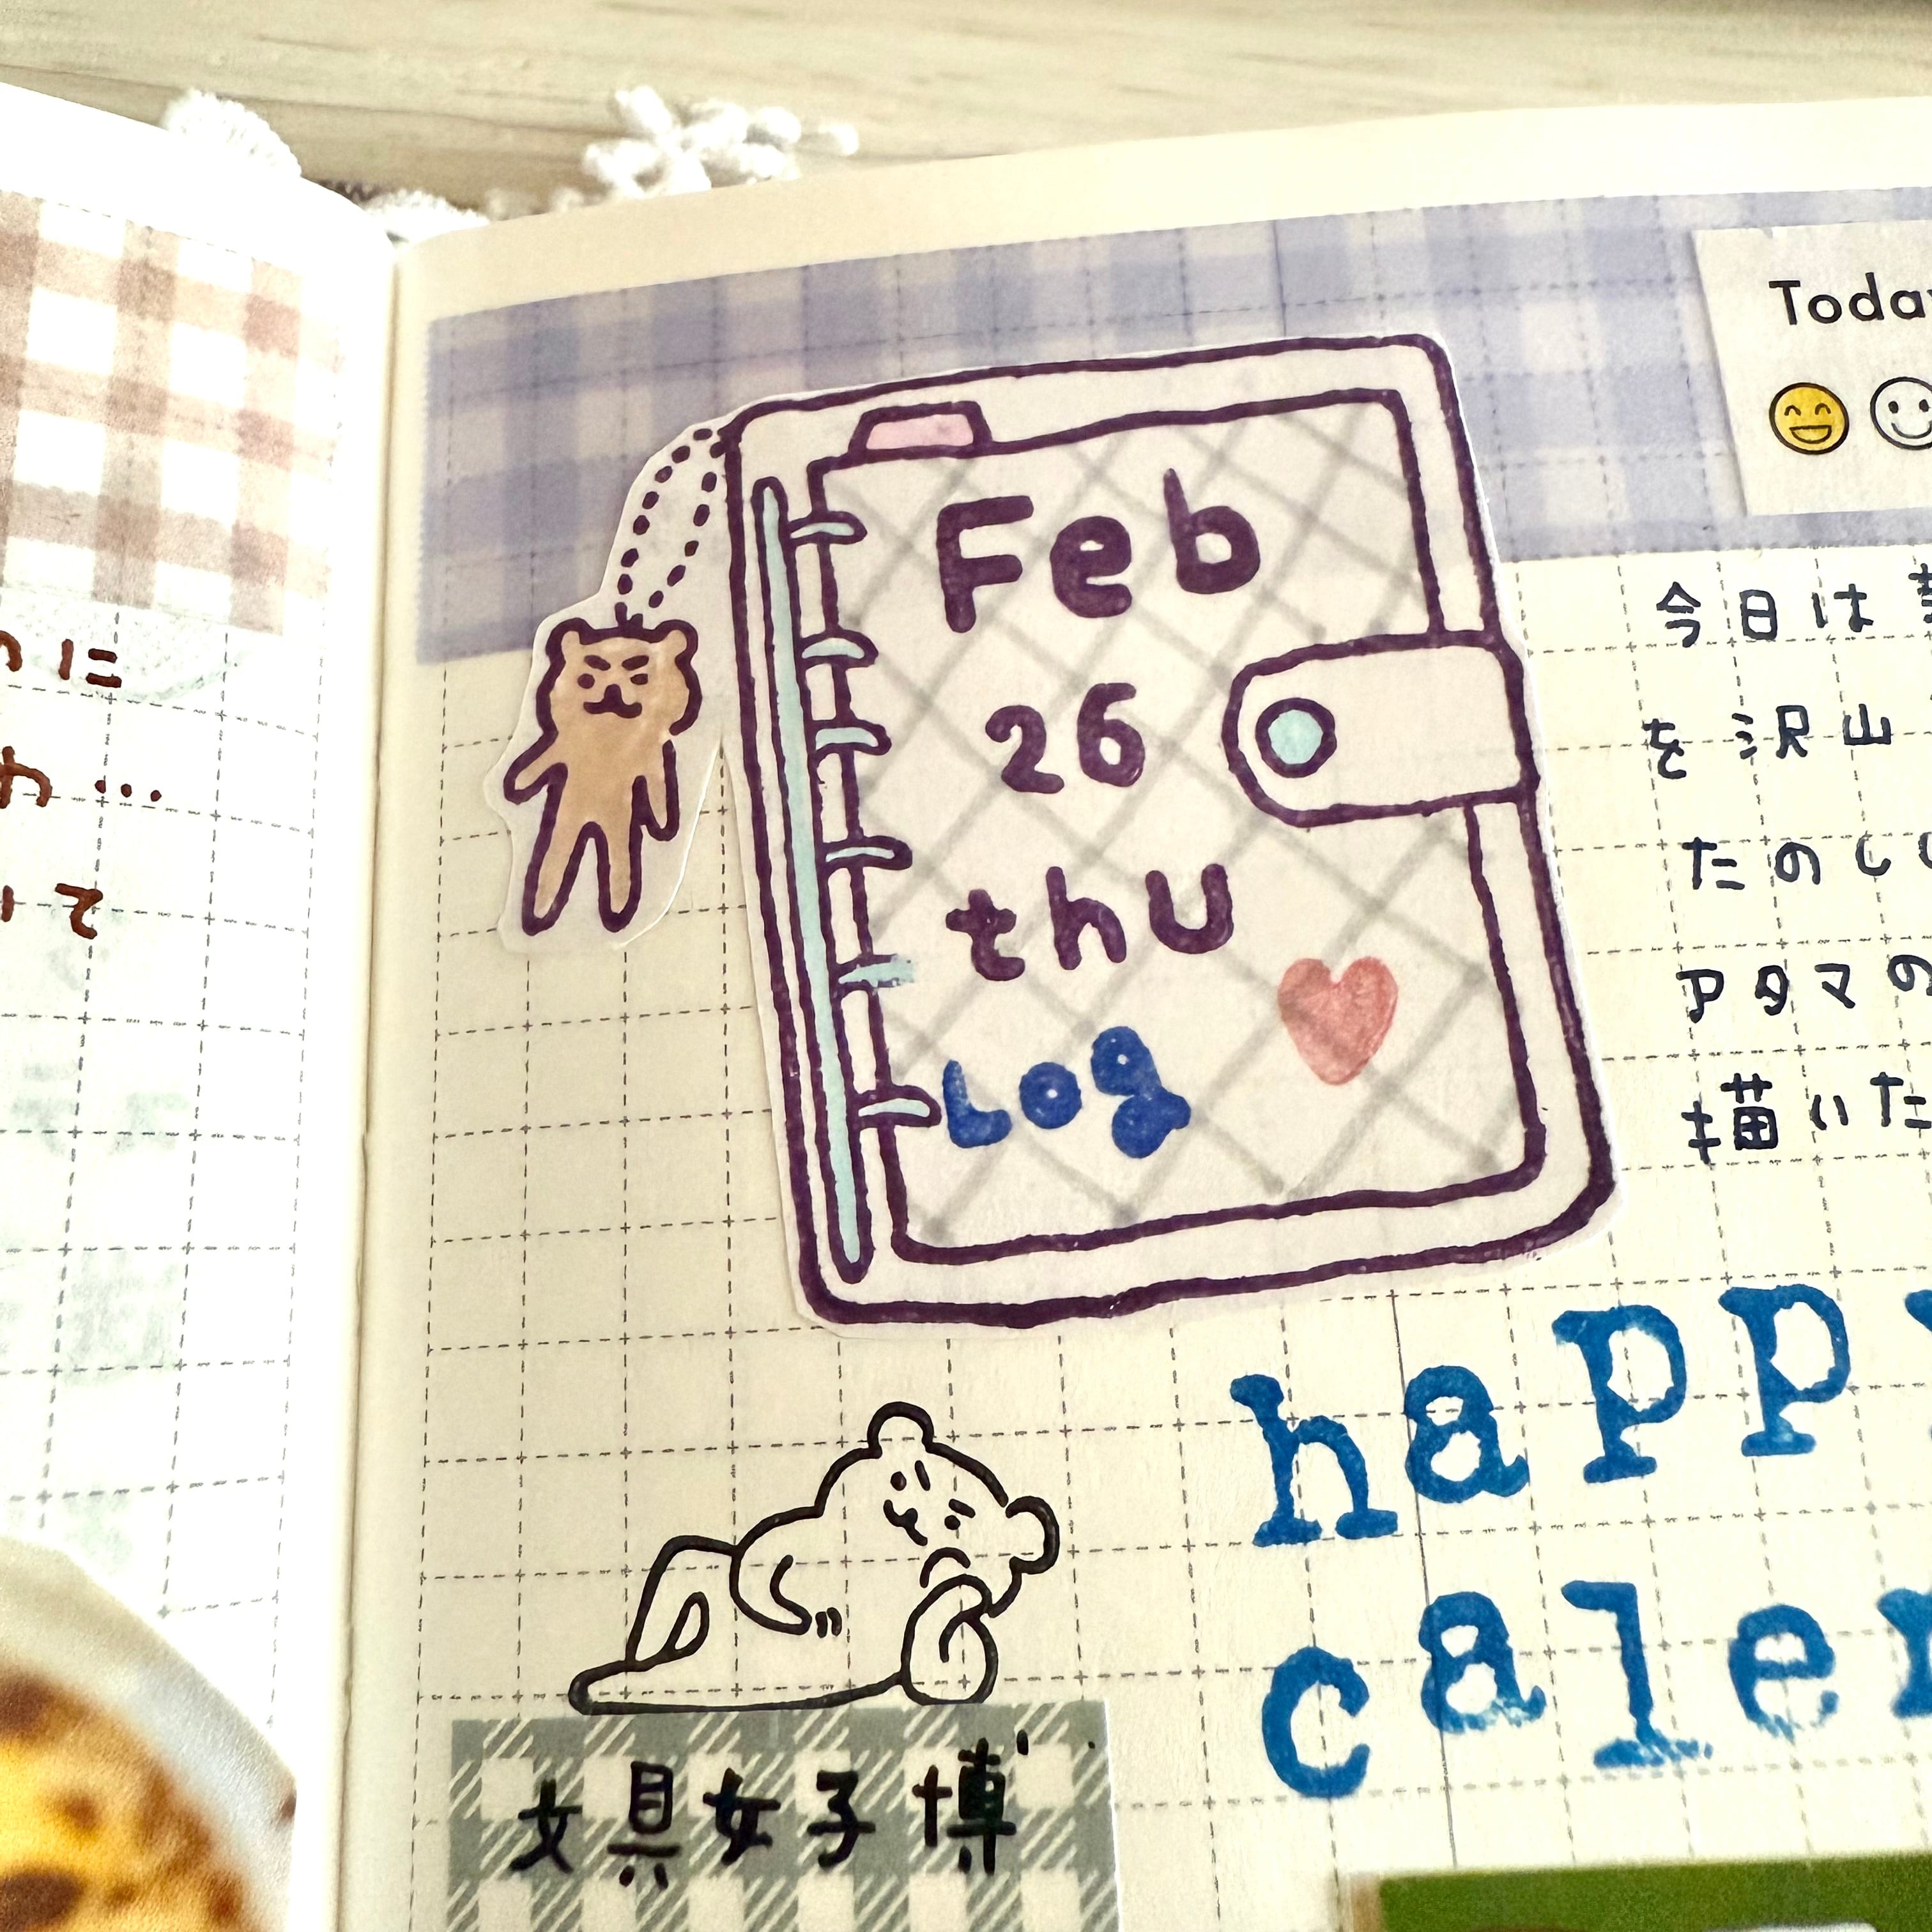 のに
や…
いて
Feb
26
thu
Log
Today
今日は
を沢山
たのし
アタマの
描いた
happy
calen
文具女子博